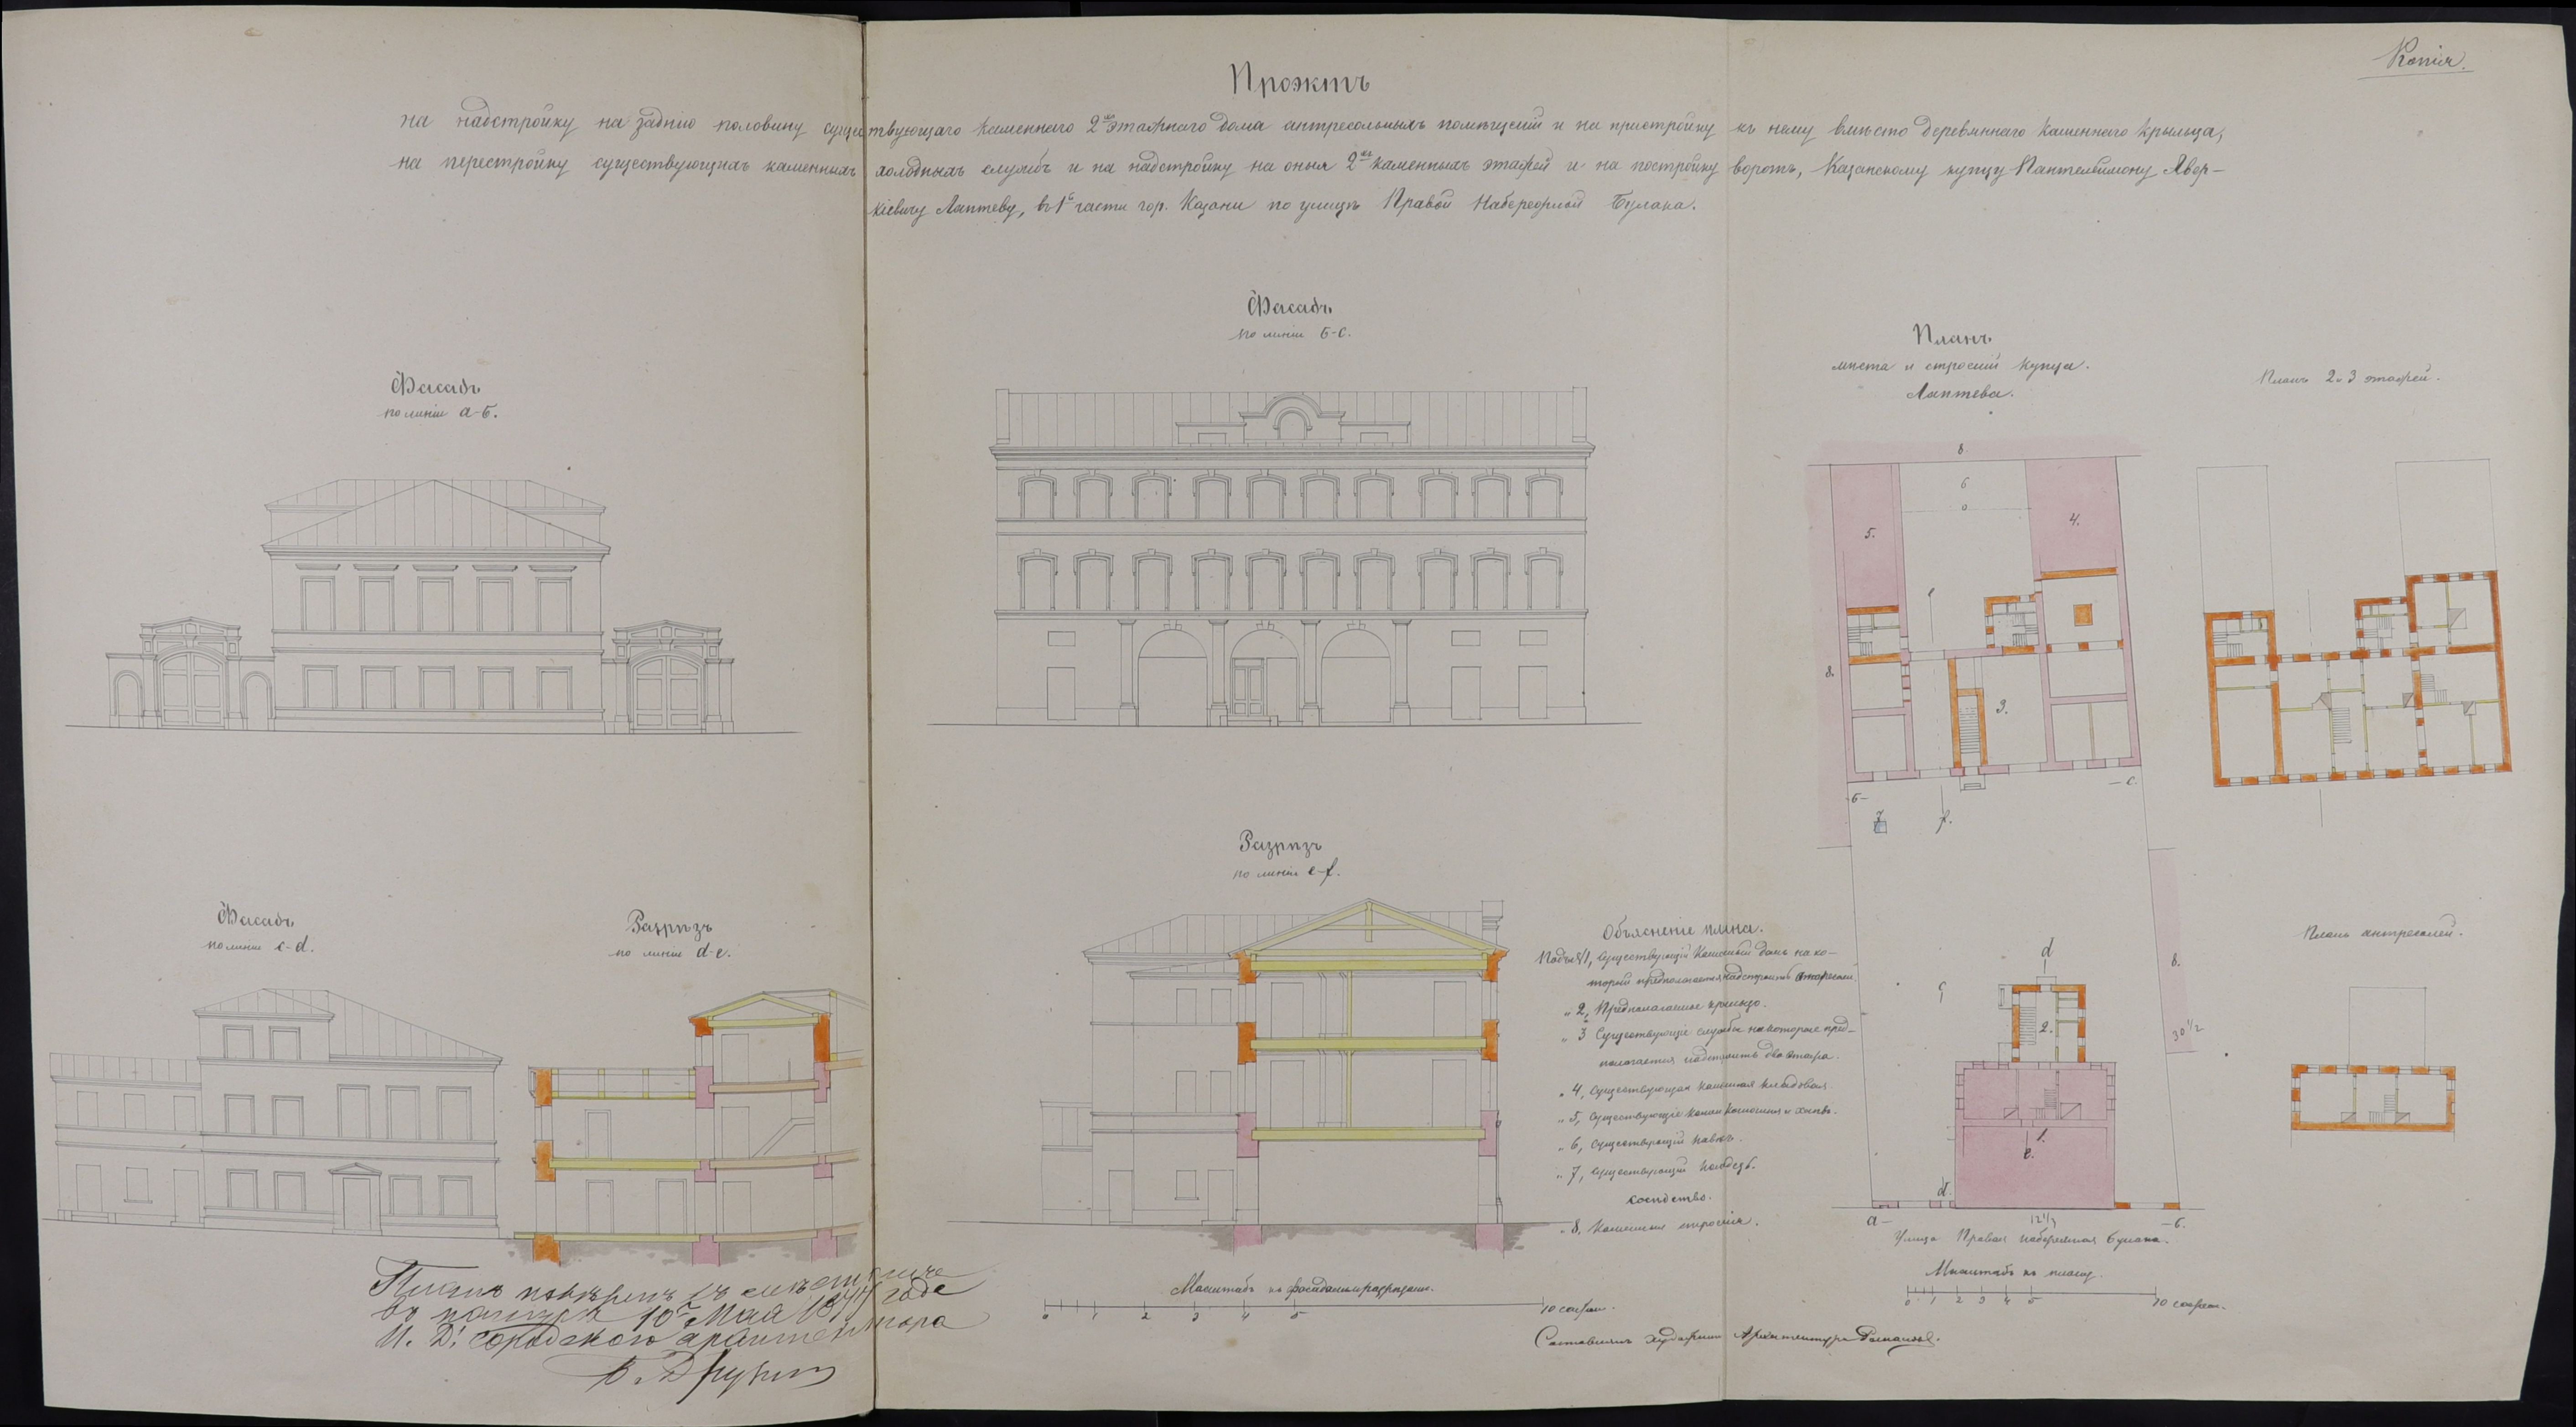 Копія.
Проэктъ
на надстройку на заднію половину существующаго каменнаго 2хъ этажнаго дома антресольныхъ помѣщеній и на пристройку къ нему вмѣсто деревяннаго каменнаго крыльца,
на перестройку существующихъ каменныхъ холодныхъ службъ и на надстройку на оныя 2хъ каменныхъ этажей и на постройку воротъ, Казанскому купцу Пантелеймону Авер-
кіевичу Лаптеву, въ 1й части гор. Казани по улицѣ Правой Набережной Булака.
Фасадъ
по линіи а-б.
Фасадъ
по линіи Б-С.
Планъ
мѣста и строеній купца
Лаптева.
Планъ 2 и 3 этажей.
8.
6
5.
4.
8.
3.
Б-
-С.
7
f.
Фасадъ
по линіи c-d.
Разрѣзъ
по линіи d-e.
Разрѣзъ
по линіи e-f.
Объясненіе плана.
Подъ №1, Существующій каменный домъ на ко-
торый предполагается надстроить антресоли.
" 2, Предполагаемое крыльцо.
" 3 Существующіе службы на которые пред-
полагается надстроить два этажа.
" 4, Существующая каменная кладовая.
" 5, Существующіе камен. конюшня и хлевъ.
" 6, Существующій навесъ.
" 7, Существующій колодезь.
Сосѣдство.
" 8, Каменныя строенія.
d
c
2.
8.
30 1/2
1.
e.
d.
а-
12 1/2
-б.
Улица Правая набережная Булака.
Планъ антресолей.
Масштабъ къ плану.
0 1 2 3 4 5 10 сажен.
Масштабъ къ фасадамъ и разрѣзамъ.
0 1 2 3 4 5 10 сажен.
Составилъ художникъ Архитектуры Романовъ.
Планъ повѣренъ съ мѣстностью
въ натурѣ 10го Мая года
И. Д. городского архитектора